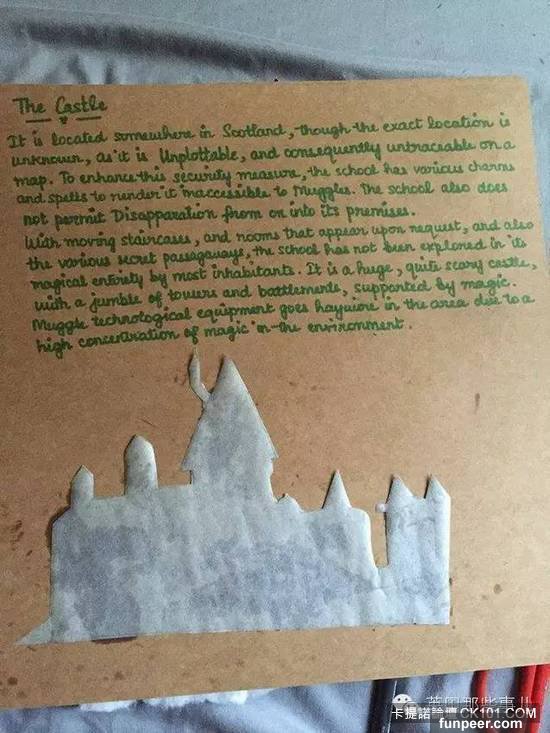 The Castle
It is located somewhere in Scotland, though the exact location is
unknown, as it is Unplottable, and consequently untraceable on a
map. To enhance this security measure, the school has various charms
and spells to render it inaccessible to Muggles. The school also does
not permit Disapparation from or into its premises.
With moving staircases, and rooms that appear upon request, and also
the various secret passageways, the school has not been explored in its
magical entirety by most inhabitants. It is a huge, quite scary castle,
with a jumble of towers and battlements, supported by magic.
Muggle technological equipment goes haywire in the area due to a
high concentration of magic in the environment.
英国那些事儿
卡提諾論壇 CK101.COM
funpeer.com